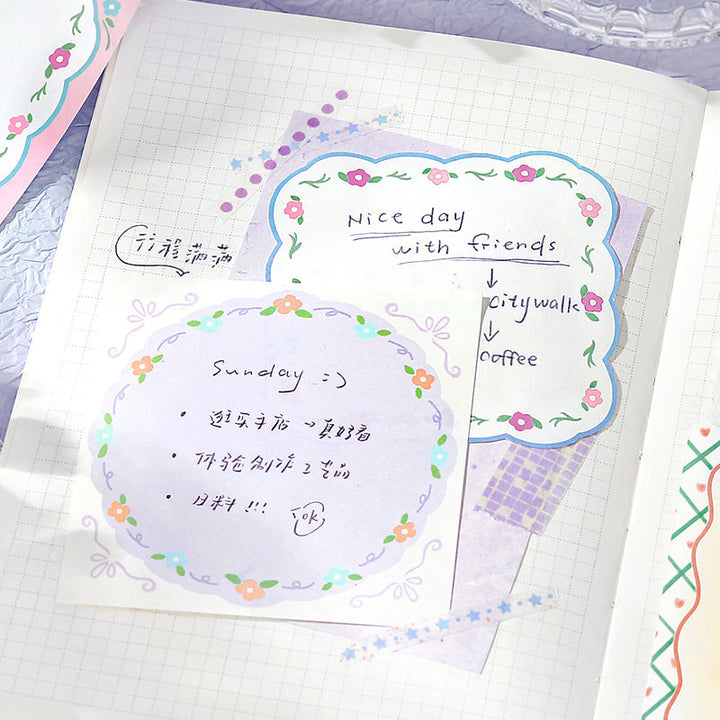 Nice day
with friends
↓
Citywalk
↓
Coffee
行程满满
Sunday :)
• 逛买手店 → 真好看
• 体验制作工艺品
• 日料!!! ok